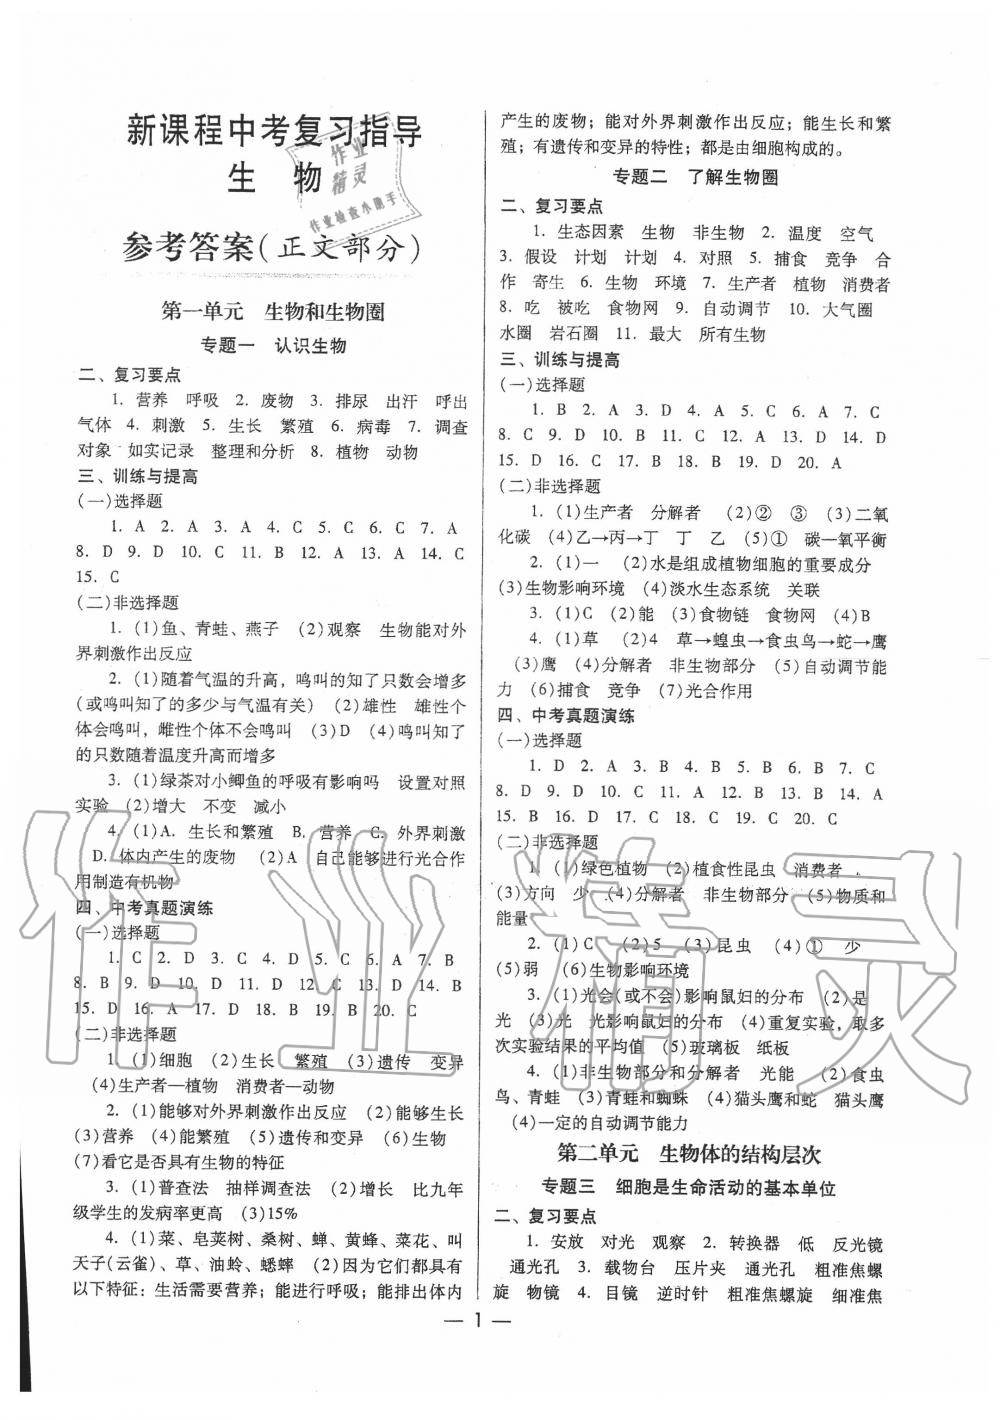 新课程中考复习指导
生 物
作业
精灵
作业检查小助手
参考答案(正文部分)
第一单元 生物和生物圈
专题一 认识生物
二、复习要点
1. 营养 呼吸 2. 废物 3. 排尿 出汗 呼出
气体 4. 刺激 5. 生长 繁殖 6. 病毒 7. 调查
对象 如实记录 整理和分析 8. 植物 动物
三、训练与提高
(一)选择题
1. A 2. A 3. A 4. C 5. C 6. C 7. A
8. D 9. D 10. C 11. B 12. A 13. A 14. C
15. C
(二)非选择题
1. (1)鱼、青蛙、燕子 (2)观察 生物能对外
界刺激作出反应
2. (1)随着气温的升高,鸣叫的知了只数会增多
(或鸣叫知了的多少与气温有关) (2)雄性 雄性个
体会鸣叫,雌性个体不会鸣叫 (3)D (4)鸣叫知了
的只数随着温度升高而增多
3. (1)绿茶对小鲫鱼的呼吸有影响吗 设置对照
实验 (2)增大 不变 减小
4. (1)A. 生长和繁殖 B. 营养 C. 外界刺激
D. 体内产生的废物 (2)A 自己能够进行光合作
用制造有机物
四、中考真题演练
(一)选择题
1. C 2. D 3. C 4. D 5. C 6. A 7. B
8. B 9. D 10. D 11. D 12. C 13. D 14. B
15. D 16. A 17. D 18. D 19. B 20. C
(二)非选择题
1. (1)细胞 (2)生长 繁殖 (3)遗传 变异
(4)生产者—植物 消费者—动物
2. (1)能够对外界刺激作出反应 (2)能够生长
(3)营养 (4)能繁殖 (5)遗传和变异 (6)生物
(7)看它是否具有生物的特征
3. (1)普查法 抽样调查法 (2)增长 比九年
级学生的发病率更高 (3)15%
4. (1)菜、皂荚树、桑树、蝉、黄蜂、菜花、叫
天子(云雀)、草、油蛉、蟋蟀 (2)它们都具有
以下特征:生活需要营养;能进行呼吸;能排出体内
产生的废物;能对外界刺激作出反应;能生长和繁
殖;有遗传和变异的特性;都是由细胞构成的。
专题二 了解生物圈
二、复习要点
1. 生态因素 生物 非生物 2. 温度 空气
3. 假设 计划 计划 4. 对照 5. 捕食 竞争 合
作 寄生 6. 生物 环境 7. 生产者 植物 消费者
8. 吃 被吃 食物网 9. 自动调节 10. 大气圈
水圈 岩石圈 11. 最大 所有生物
三、训练与提高
(一)选择题
1. B 2. A 3. D 4. A 5. C 6. A 7. C
8. C 9. D 10. B 11. A 12. D 13. D 14. D
15. D 16. C 17. B 18. B 19. D 20. A
(二)非选择题
1. (1)生产者 分解者 (2)② ③ (3)二氧
化碳 (4)乙→丙→丁 丁 乙 (5)① 碳—氧平衡
2. (1)一 (2)水是组成植物细胞的重要成分
(3)生物影响环境 (4)淡水生态系统 关联
3. (1)C (2)能 (3)食物链 食物网 (4)B
4. (1)草 (2)4 草→蝗虫→食虫鸟→蛇→鹰
(3)鹰 (4)分解者 非生物部分 (5)自动调节能
力 (6)捕食 竞争 (7)光合作用
四、中考真题演练
(一)选择题
1. D 2. A 3. B 4. A 5. B 6. B 7. C
8. D 9. D 10. D 11. B 12. B 13. C 14. A
15. B 16. B 17. A 18. C 19. C 20. C
(二)非选择题
1. (1)绿色植物 (2)植食性昆虫 消费者
(3)方向 少 (4)分解者 非生物部分 (5)物质和
能量
2. (1)C (2)5 (3)昆虫 (4)① 少
(5)弱 (6)生物影响环境
3. (1)光会(或不会)影响鼠妇的分布 (2)是
光 (3)光 光影响鼠妇的分布 (4)重复实验,取多
次实验结果的平均值 (5)玻璃板 纸板
4. (1)非生物部分和分解者 光能 (2)食虫
鸟、青蛙 (3)青蛙和蜘蛛 (4)猫头鹰和蛇 猫头鹰
(4)一定的自动调节能力
第二单元 生物体的结构层次
专题三 细胞是生命活动的基本单位
二、复习要点
1. 安放 对光 观察 2. 转换器 低 反光镜
通光孔 3. 载物台 压片夹 通光孔 粗准焦螺
旋 物镜 4. 目镜 逆时针 粗准焦螺旋 细准焦
— 1 —
作业精灵